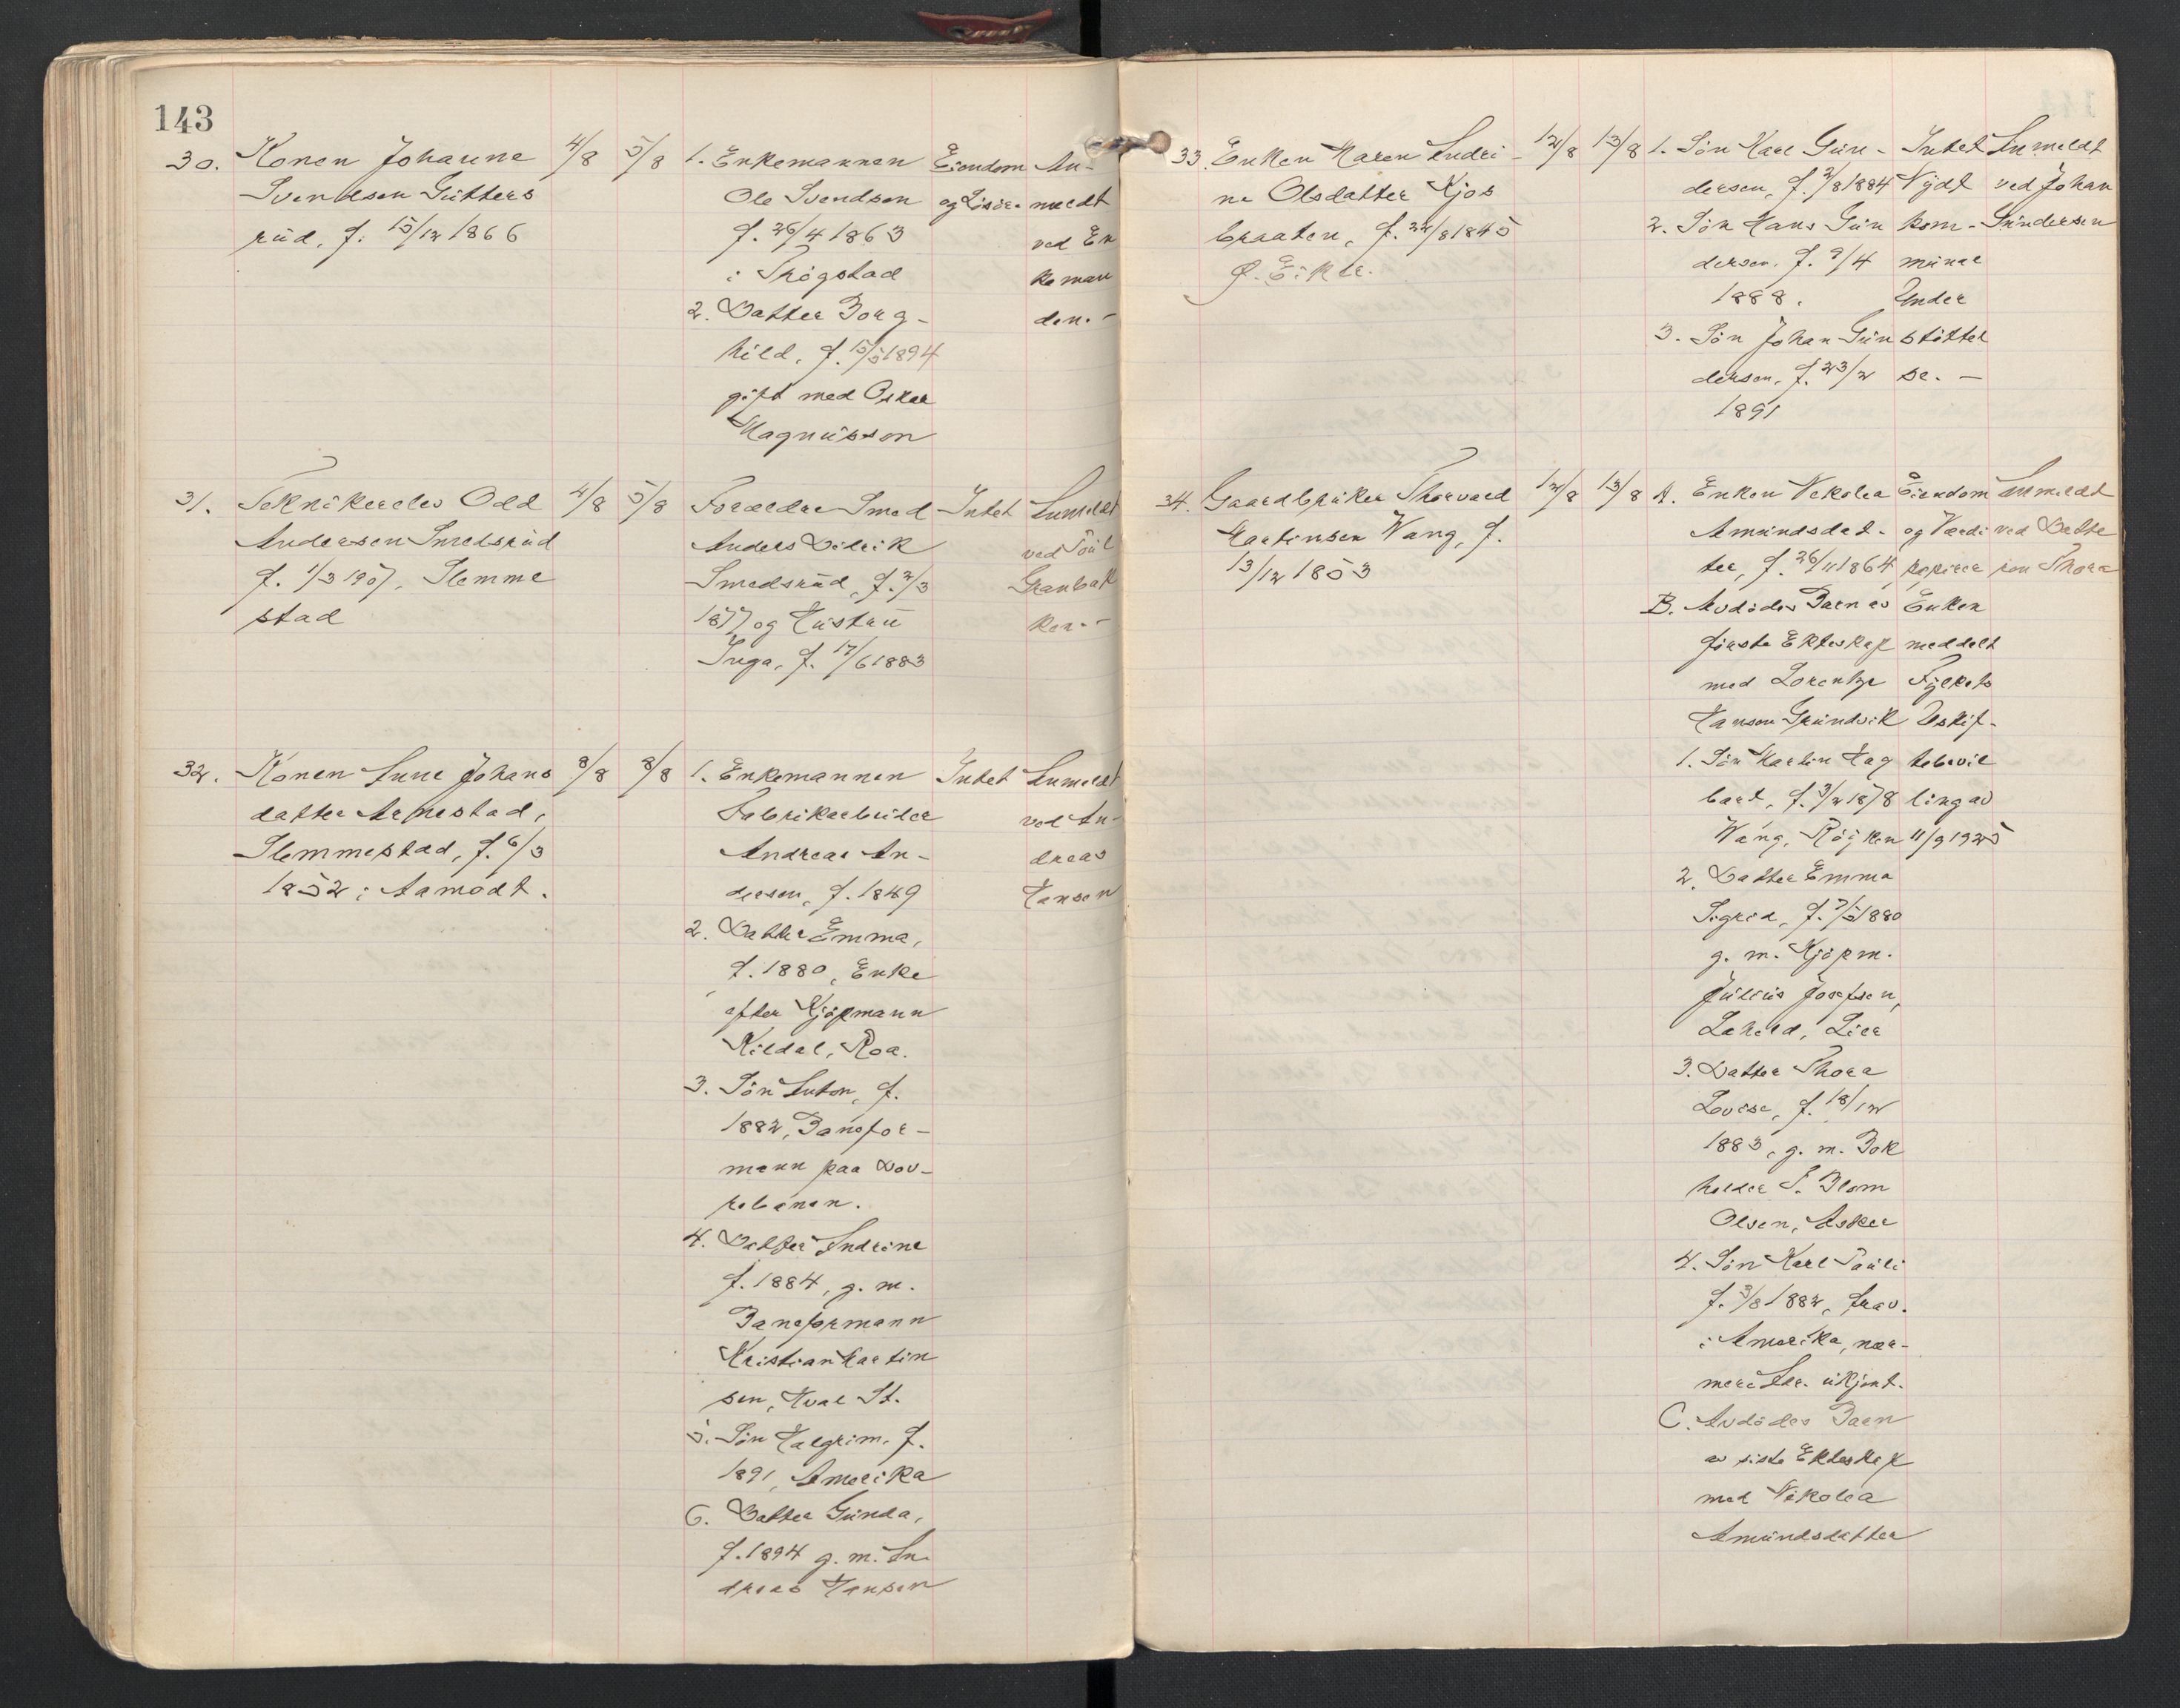 143
30. Konen Johanne 4/8 5/8
Svendsen Gutters
rud, f. 15/12 1866
1. Enkemannen
Ole Svendsen
f. 26/4 1863
i Trögstad
2. Datter Borg-
hild, f. 15/5 1894
gift med Oskar
Magnussen
Eiendom
og Lösöre
An-
meldt
ved En
keman
den. -
31. Teknikerelev Odd 4/8 5/8
Andersen Smedsrud
f. 1/3 1907, Slemme
stad
Foreldre Smed
Anders Didrik
Smedsrud, f. 2/3
1877 og Hustru
Inga, f. 17/6 1883
Intet
Anmeldt
ved Poul
Granbak
ken. -
32. Konen Anne Johans 8/8 8/8
datter Arnestad,
Slemmestad, f. 6/3
1852 i Aamodt.
1. Enkemannen
Fabrikarbeider
Andreas An-
dersen, f. 1849
2. Datter Emma,
f. 1880, Enke
efter Kjöpmann
Kildal, Roa.
3. Sön Anton, f.
1882, Banefor-
mann paa Dov-
rebanen.
4. Datter Andrine
f. 1884, g. m.
Baneformann
Kristian Martin
sen, Hval St.
5. Sön Halgrim, f.
1891, Amerika
6. Datter Gunda,
f. 1894 g. m. An
dreas Hansen
Intet
Anmeldt
ved An-
dreas
Hansen
33. Enken Karen Andri- 12/8 13/8
ne Olsdatter Kjos
braaten, f. 22/8 1845
Ø. Eiker.
1. Sön Karl Gun-
dersen, f. 2/8 1884
2. Sön Hans Gun
dersen, f. 9/4
1888.
3. Sön Johan Gun
dersen, f. 23/2
1891
Intet
Nydt
kom-
munal
Under
stöttel
se. -
Anmeldt
ved Johan
Gundersen
34. Gaardbruker Thorvald 12/8 13/8
Martinsen Wang, f.
13/12 1853
A. Enken Nekolea
Amundsdat-
ter, f. 26/11 1864
B. Avdödes Barn av
förste Ekteskap
med Lorentze
Hansen Grundvik
1. Sön Martin Hag
bart, f. 3/2 1878
Wang, Röyken
2. Datter Emma
Sigrid, f. 7/5 1880
g. m. Kjöpm.
Julius Josefsen,
Laheld, Lier
3. Datter Thora
Lovise, f. 18/12
1883, g. m. Bok
holder S. Blom
Olsen, Asker
4. Sön Karl Pauli
f. 3/8 1882, frav.
i Amerika, nær-
mere Adr. ukjent.
C. Avdödes Barn
av siste Ekteskap
med Nekolea
Amundsdatter
Eiendom
og Værdi
papirer
Enken
meddelt
Fylkets
Uskif-
tebevil
ling av
11/9 1925
Anmeldt
ved Datte
ren Thora